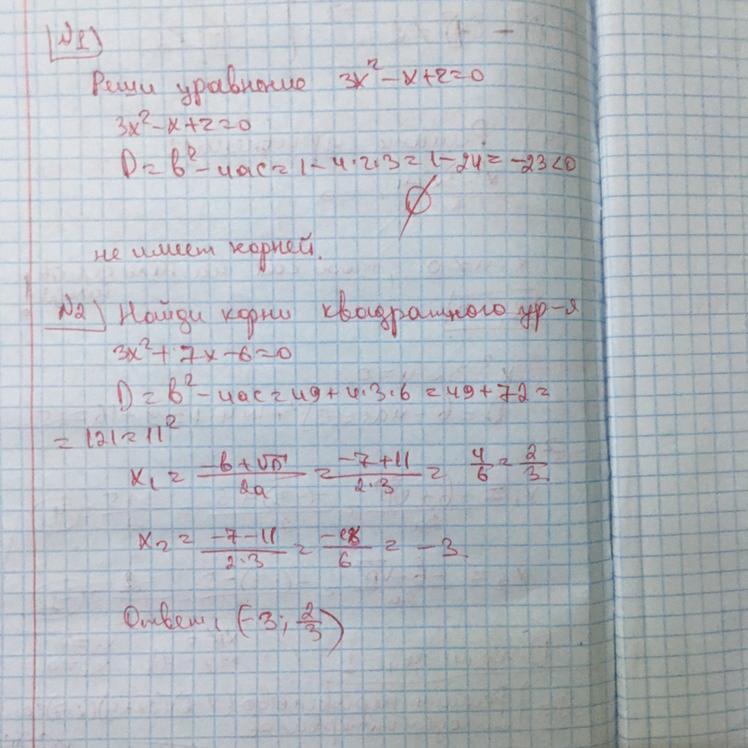 №1)
Реши уравнение 3x²-x+2=0
3x²-x+2=0
D=b²-4ac=1-4·2·3=1-24=-23<0
∅
не имеет корней.
№2) Найди корни квадратного ур-я
3x²+7x-6=0
D=b²-4ac=49+4·3·6=49+72=
=121=11²
x₁=(-b+√D)/2a=(-7+11)/2·3=4/6=2/3
x₂=(-7-11)/2·3=-18/6=-3
Ответ: (-3; 2/3)